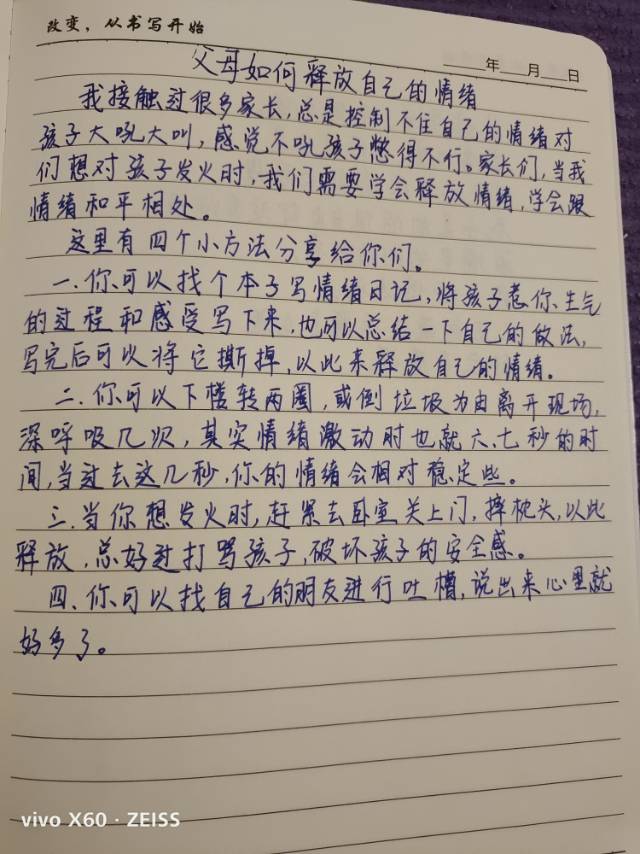 改变，从书写开始
年 月 日
父母如何释放自己的情绪
我接触过很多家长，总是控制不住自己的情绪对
孩子大吼大叫，感觉不吼孩子憋得不行。家长们，当我
们想对孩子发火时，我们需要学会释放情绪，学会跟
情绪和平相处。
这里有四个小方法分享给你们。
一.你可以找个本子写情绪日记，将孩子惹你生气
的过程和感受写下来，也可以总结一下自己的做法，
写完后可以将它撕掉，以此来释放自己的情绪。
二.你可以下楼转两圈，或倒垃圾为由离开现场，
深呼吸几次，其实情绪激动时也就六、七秒的时
间，当过去这几秒，你的情绪会相对稳定些。
三.当你想发火时，赶紧去卧室关上门，摔枕头，以此
释放，总好过打骂孩子，破坏孩子的安全感。
四、你可以找自己的朋友进行吐槽，说出来心里就
好多了。
vivo X60 · ZEISS